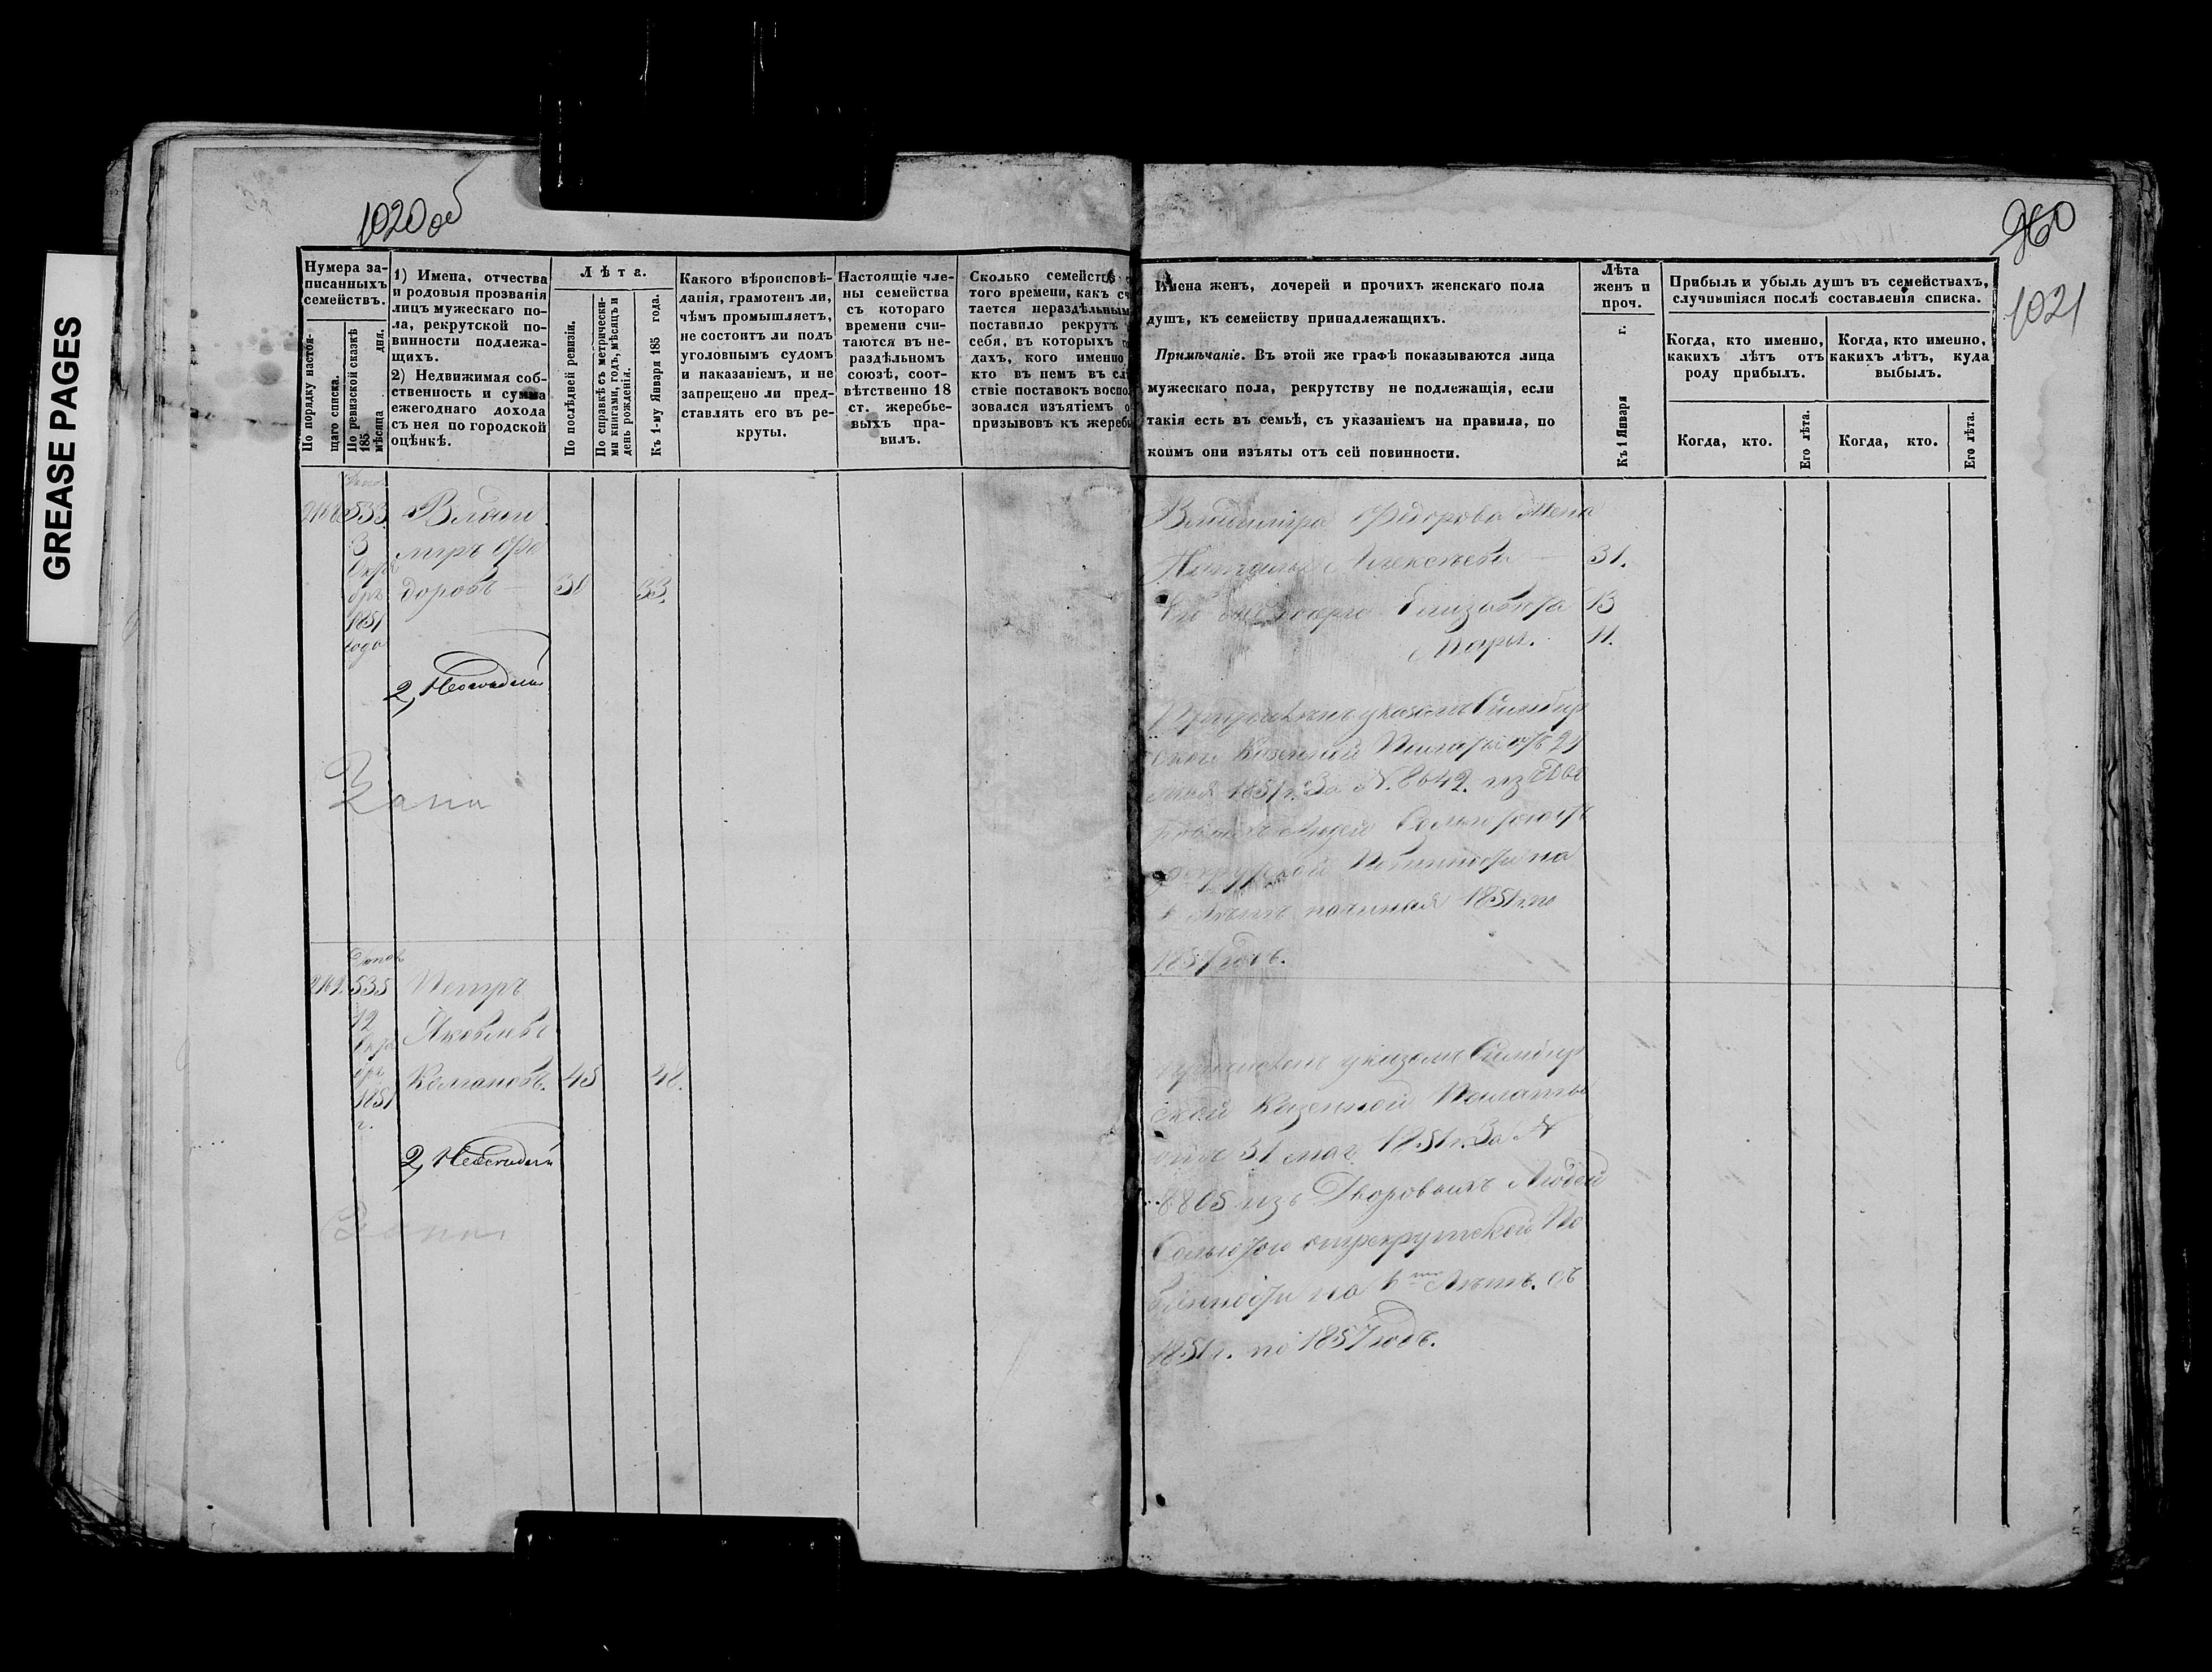 GREASE PAGES
1020 об
960
1021
Нумера за-
писанныхъ
семействъ.
По порядку настоя-
щаго списка.
По ревизской сказкѣ
185
мѣсяца дня.
1) Имена, отчества
и родовыя прозванія
лицъ мужескаго по-
ла, рекрутской по-
винности подлежа-
щихъ.
2) Недвижимая соб-
ственность и сумма
ежегоднаго дохода
съ нея по городской
оцѣнкѣ.
Лѣта.
По послѣдней ревизіи.
По справкѣ съ метрически-
ми книгами, годъ, мѣсяцъ и
день рожденія.
Къ 1-му Января 185 года.
Какого вѣроисповѣ-
данія, грамотенъ ли,
чѣмъ промышляетъ,
не состоитъ ли подъ
уголовнымъ судомъ
и наказаніемъ, и не
запрещено ли пред-
ставлять его въ ре-
круты.
Настоящіе чле-
ны семейства
съ котораго
времени счи-
таются въ не-
раздѣльномъ
союзѣ, соот-
вѣтственно 18
ст. жеребье-
выхъ пра-
вилъ.
Сколько семейство
того времени, какъ сч
тается нераздѣльнымъ
поставило рекрутъ
себя, въ которыхъ го
дахъ, кого именно
кто въ немъ въ слѣ
ствіе поставокъ воспол
зовался изъятіемъ о
призывовъ къ жеребь
Имена женъ, дочерей и прочихъ женскаго пола
душъ, къ семейству принадлежащихъ.
Примѣчаніе. Въ этой же графѣ показываются лица
мужескаго пола, рекрутству не подлежащія, если
такія есть въ семьѣ, съ указаніемъ на правила, по
коимъ они изъяты отъ сей повинности.
Лѣта
женъ и
проч.
Къ 1 Января г.
Прибыль и убыль душъ въ семействахъ,
случившіяся послѣ составленія списка.
Когда, кто именно,
какихъ лѣтъ отъ
роду прибылъ.
Когда, кто именно,
какихъ лѣтъ, куда
выбылъ.
Когда, кто.
Его лѣта.
Когда, кто.
Его лѣта.
533 Влади
3 миръ Фе
доровъ 30 33.
1851
года
2,
Владиміра Федорова Жена
Наталья Алексѣева 31.
Елизавета 13
Марья. 11.
указомъ Симбир
ской Казенной Палаты отъ 24
мая 1851 г. За №. 8642. из Дво
ровыхъ Людей
рекрутской Повинности на
6 Лѣтъ начиная 1851 г. по
1857 годъ.
535 Петръ
12 Яковлевъ
45 48.
1851
г.
2,
Причисленъ указомъ Симбир
ской Казенной Палаты
отъ 31 мая 1851 г. За №
8805 изъ Дворовыхъ Людей
отрекрутской По
винности на 6 Лѣтъ. съ
1851 г. по 1857 годъ.